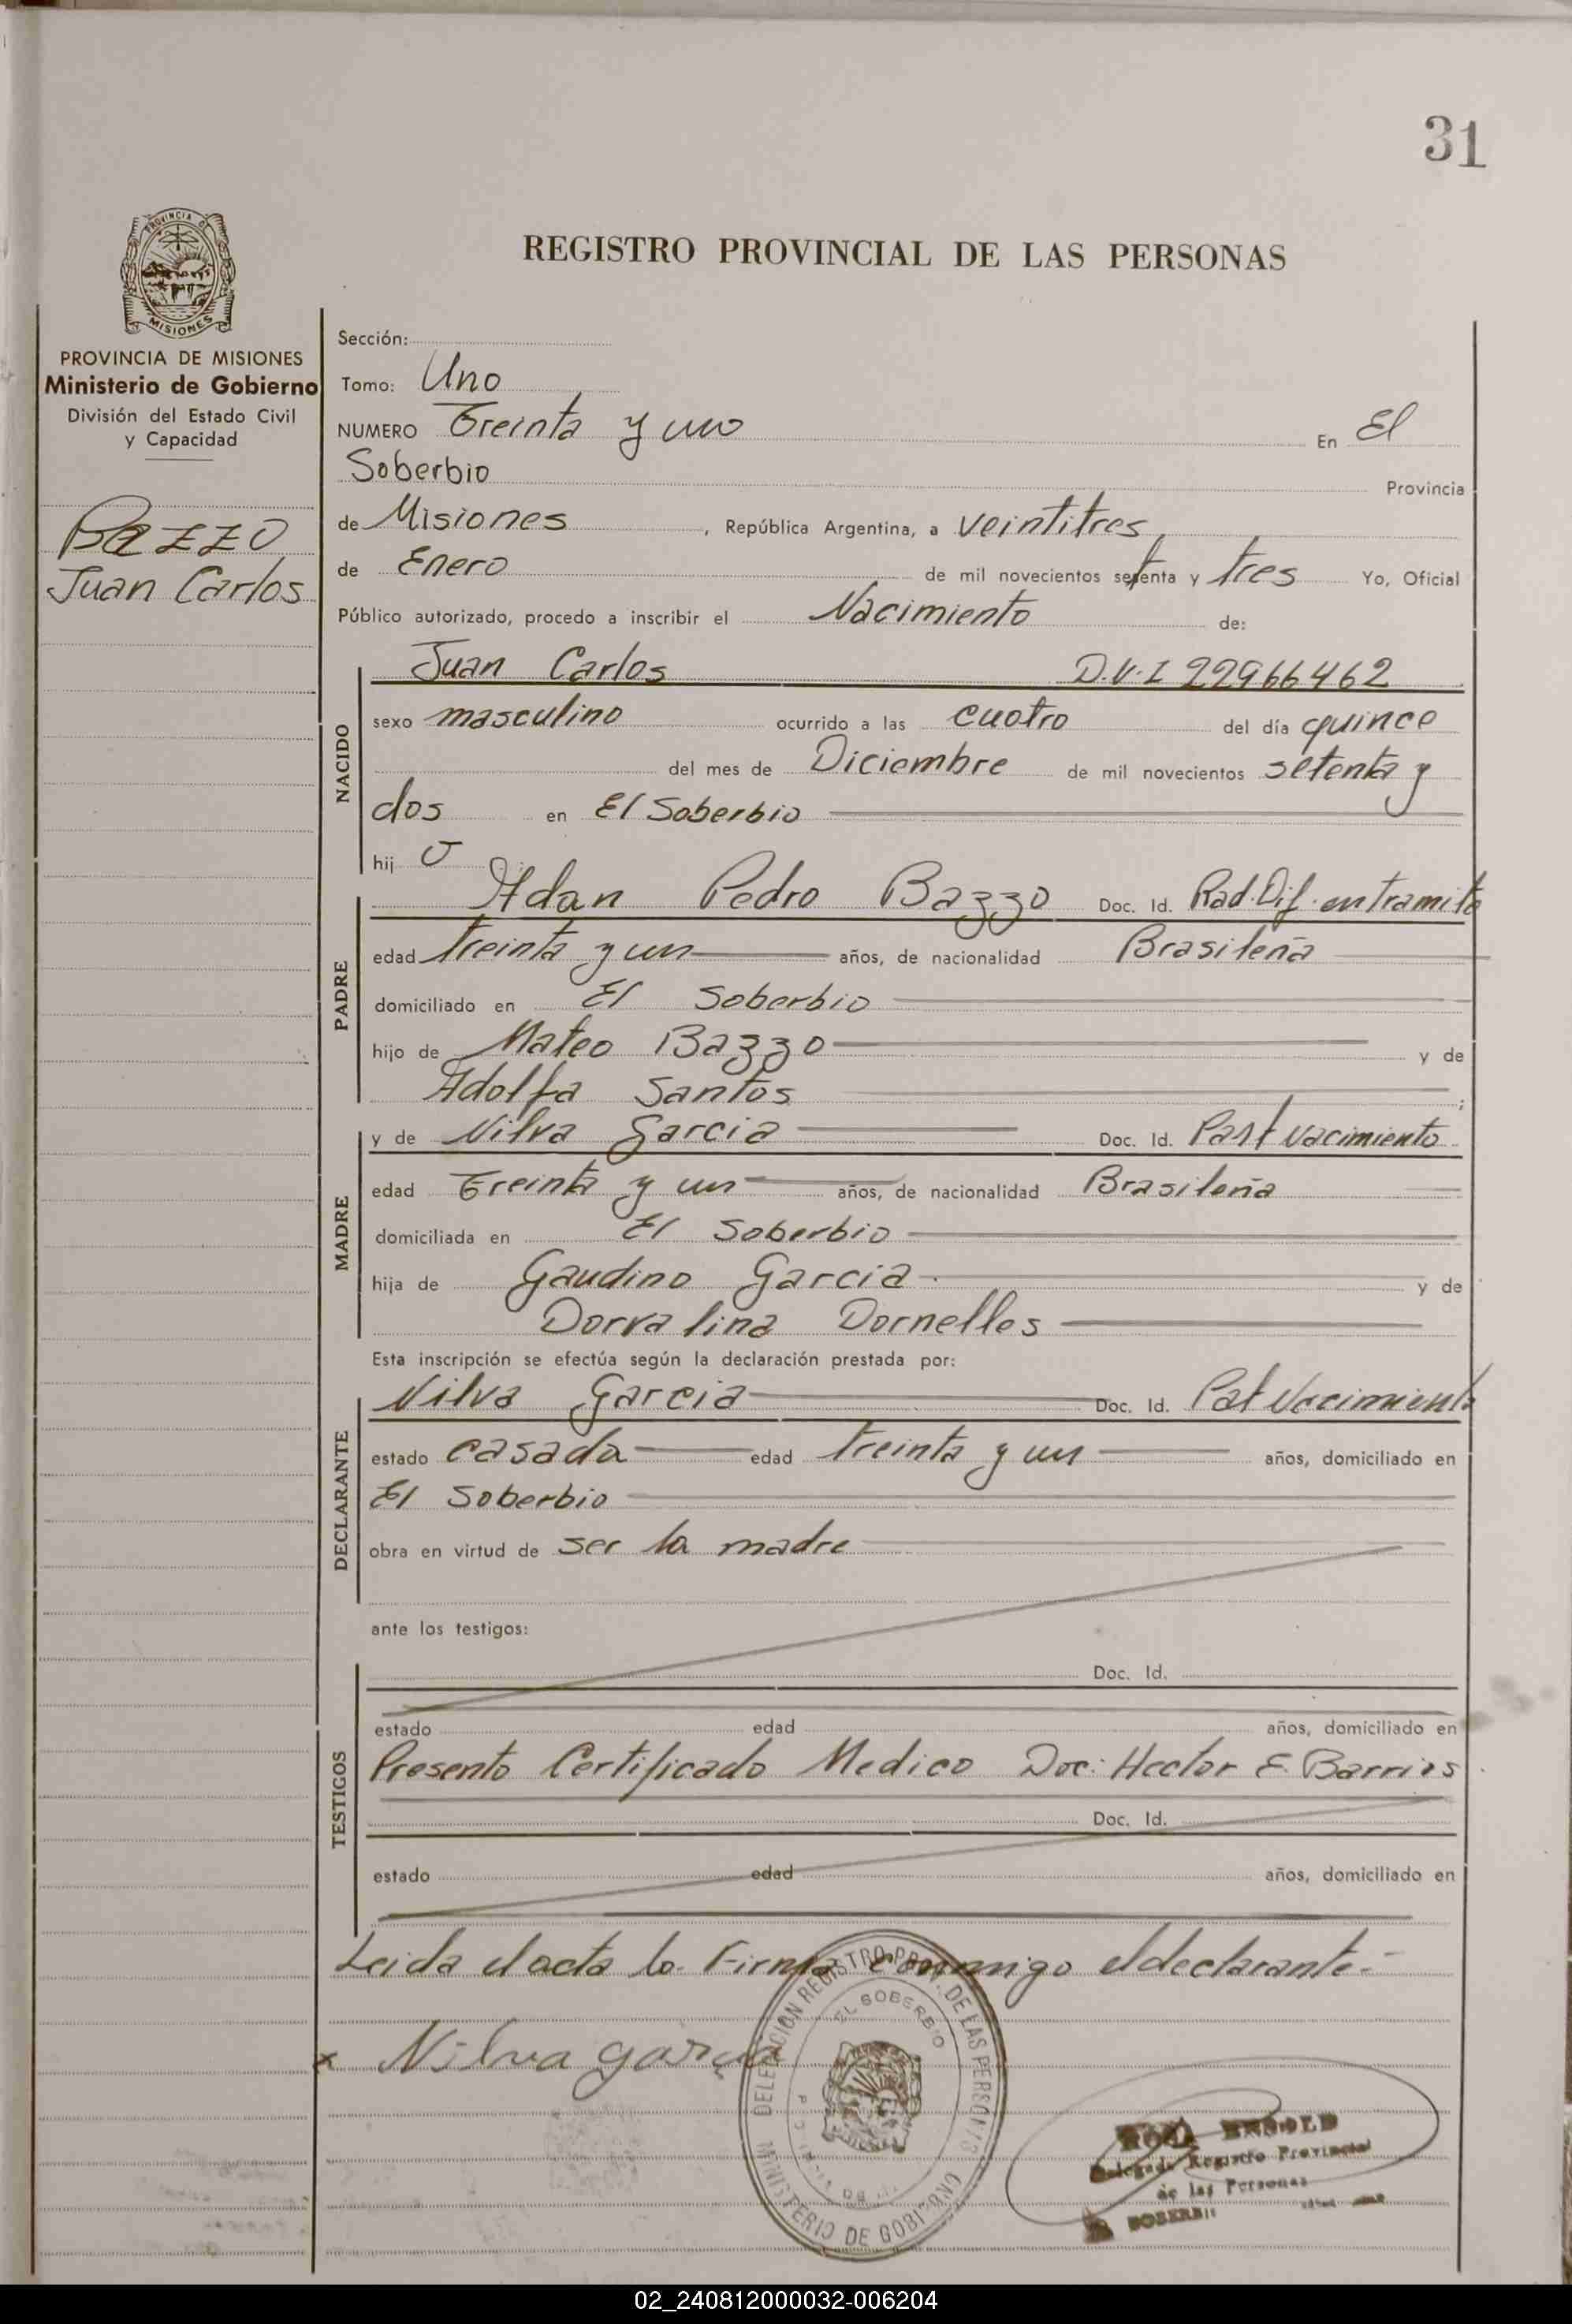 31
REGISTRO PROVINCIAL DE LAS PERSONAS
PROVINCIA DE MISIONES
Ministerio de Gobierno
División del Estado Civil
y Capacidad
BAZZO
Juan Carlos
Sección:
Tomo: Uno
NUMERO Treinta y uno En El
Soberbio Provincia
de Misiones, República Argentina, a veintitres
de Enero de mil novecientos setenta y tres Yo, Oficial
Público autorizado, procedo a inscribir el Nacimiento de:
NACIDO
Juan Carlos D.N.I 22966462
sexo masculino ocurrido a las cuatro del día quince
del mes de Diciembre de mil novecientos setenta y
dos en El Soberbio
hij o
PADRE
Adan Pedro Bazzo Doc. Id. Rad. Dif. en tramite
edad treinta y un años, de nacionalidad Brasileña
domiciliado en El Soberbio
hijo de Mateo Bazzo y de
Adolfa Santos;
MADRE
y de Nilva Garcia Doc. Id. Part Nacimiento
edad Treinta y un años, de nacionalidad Brasileña
domiciliada en El Soberbio
hija de Gaudino Garcia y de
Dorvalina Dornelles
Esta inscripción se efectúa según la declaración prestada por:
DECLARANTE
Nilva Garcia Doc. Id. Pat Nacimiento
estado casada edad treinta y un años, domiciliado en
El Soberbio
obra en virtud de ser la madre
ante los testigos:
TESTIGOS
Doc. Id.
estado edad años, domiciliado en
Presento Certificado Medico Doc: Hector E. Barrios
Doc. Id.
estado edad años, domiciliado en
Leida el acta la Firma conmigo el declarante.-
x Nilva garcia
DELEGACION REGISTRO PROV. DE LAS PERSONAS
EL SOBERBIO
MINISTERIO DE GOBIERNO
Delegado Registro Provincial
de las Personas
SOBERBIO
02_240812000032-006204